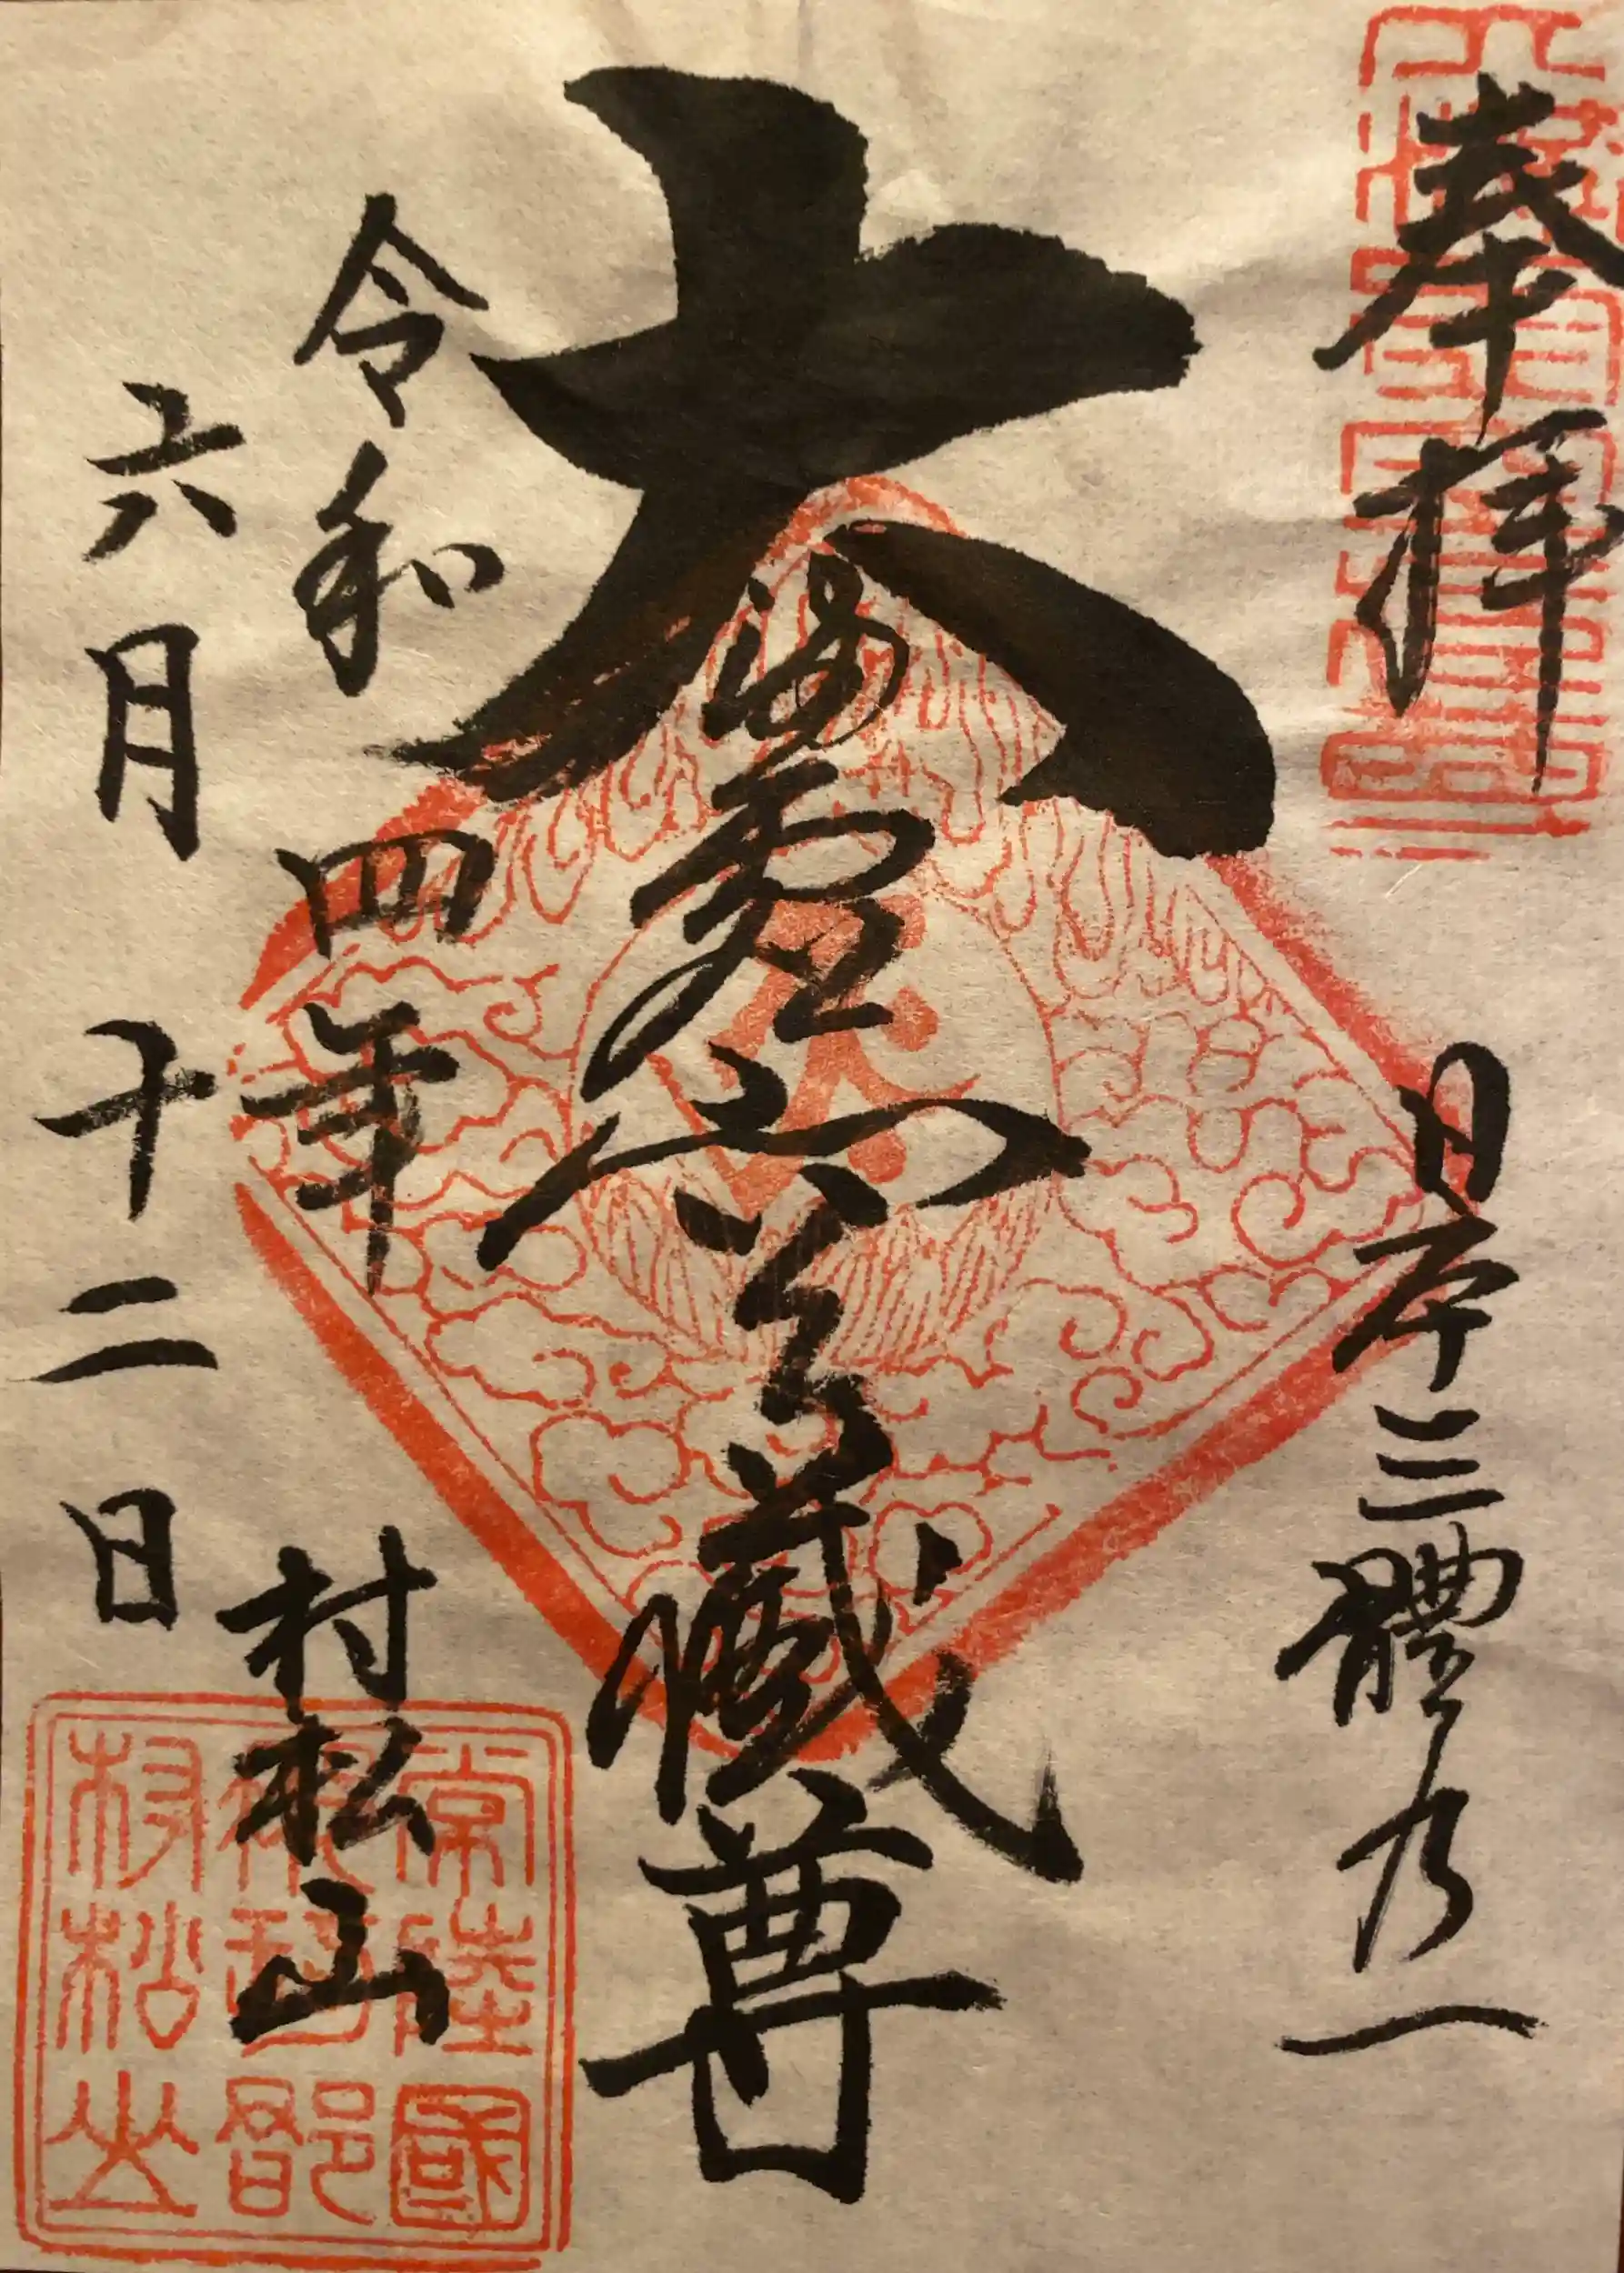 奉拝
日本三體乃一
大満虚空藏尊
令和四年
六月十二日
村松山
常陸國
那珂郡
村松山